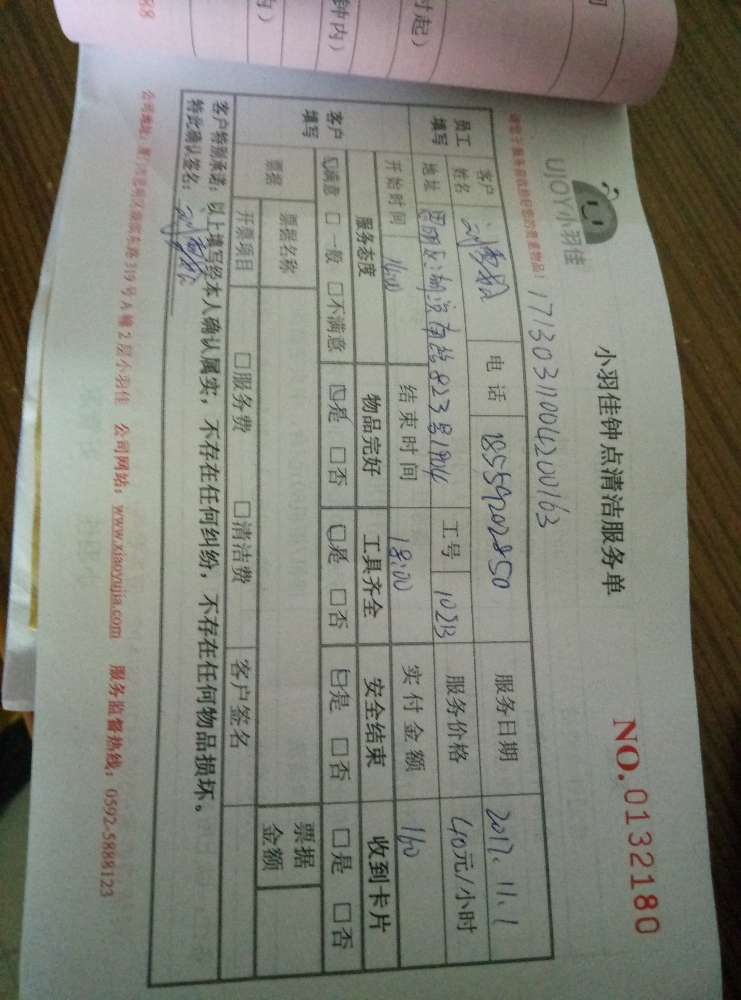 时起)
钟内)
内)
UJOY小羽佳
小羽佳钟点清洁服务单
NO. 0132180
17130311004200163
员工填写
客户姓名
电话
18559202850
服务日期
2017.11.1
地址
823号1904
工号
102B
服务价格
40元/小时
开始时间
16:00
结束时间
18:00
实付金额
160
客户填写
服务态度
物品完好
工具齐全
安全结束
收到卡片
☑满意 □一般 □不满意
☑是 □否
☑是 □否
☑是 □否
□是 □否
票据
票据名称
票据金额
开票项目
□服务费 □清洁费
客户签名
客户特别承诺:以上填写经本人确认属实,不存在任何纠纷,不存在任何物品损坏。
特此确认签名:
公司地址:厦门市思明区湖滨东路319号A幢2层小羽佳 公司网站:www.xiaoyujia.com 服务监督热线:0592-5888123